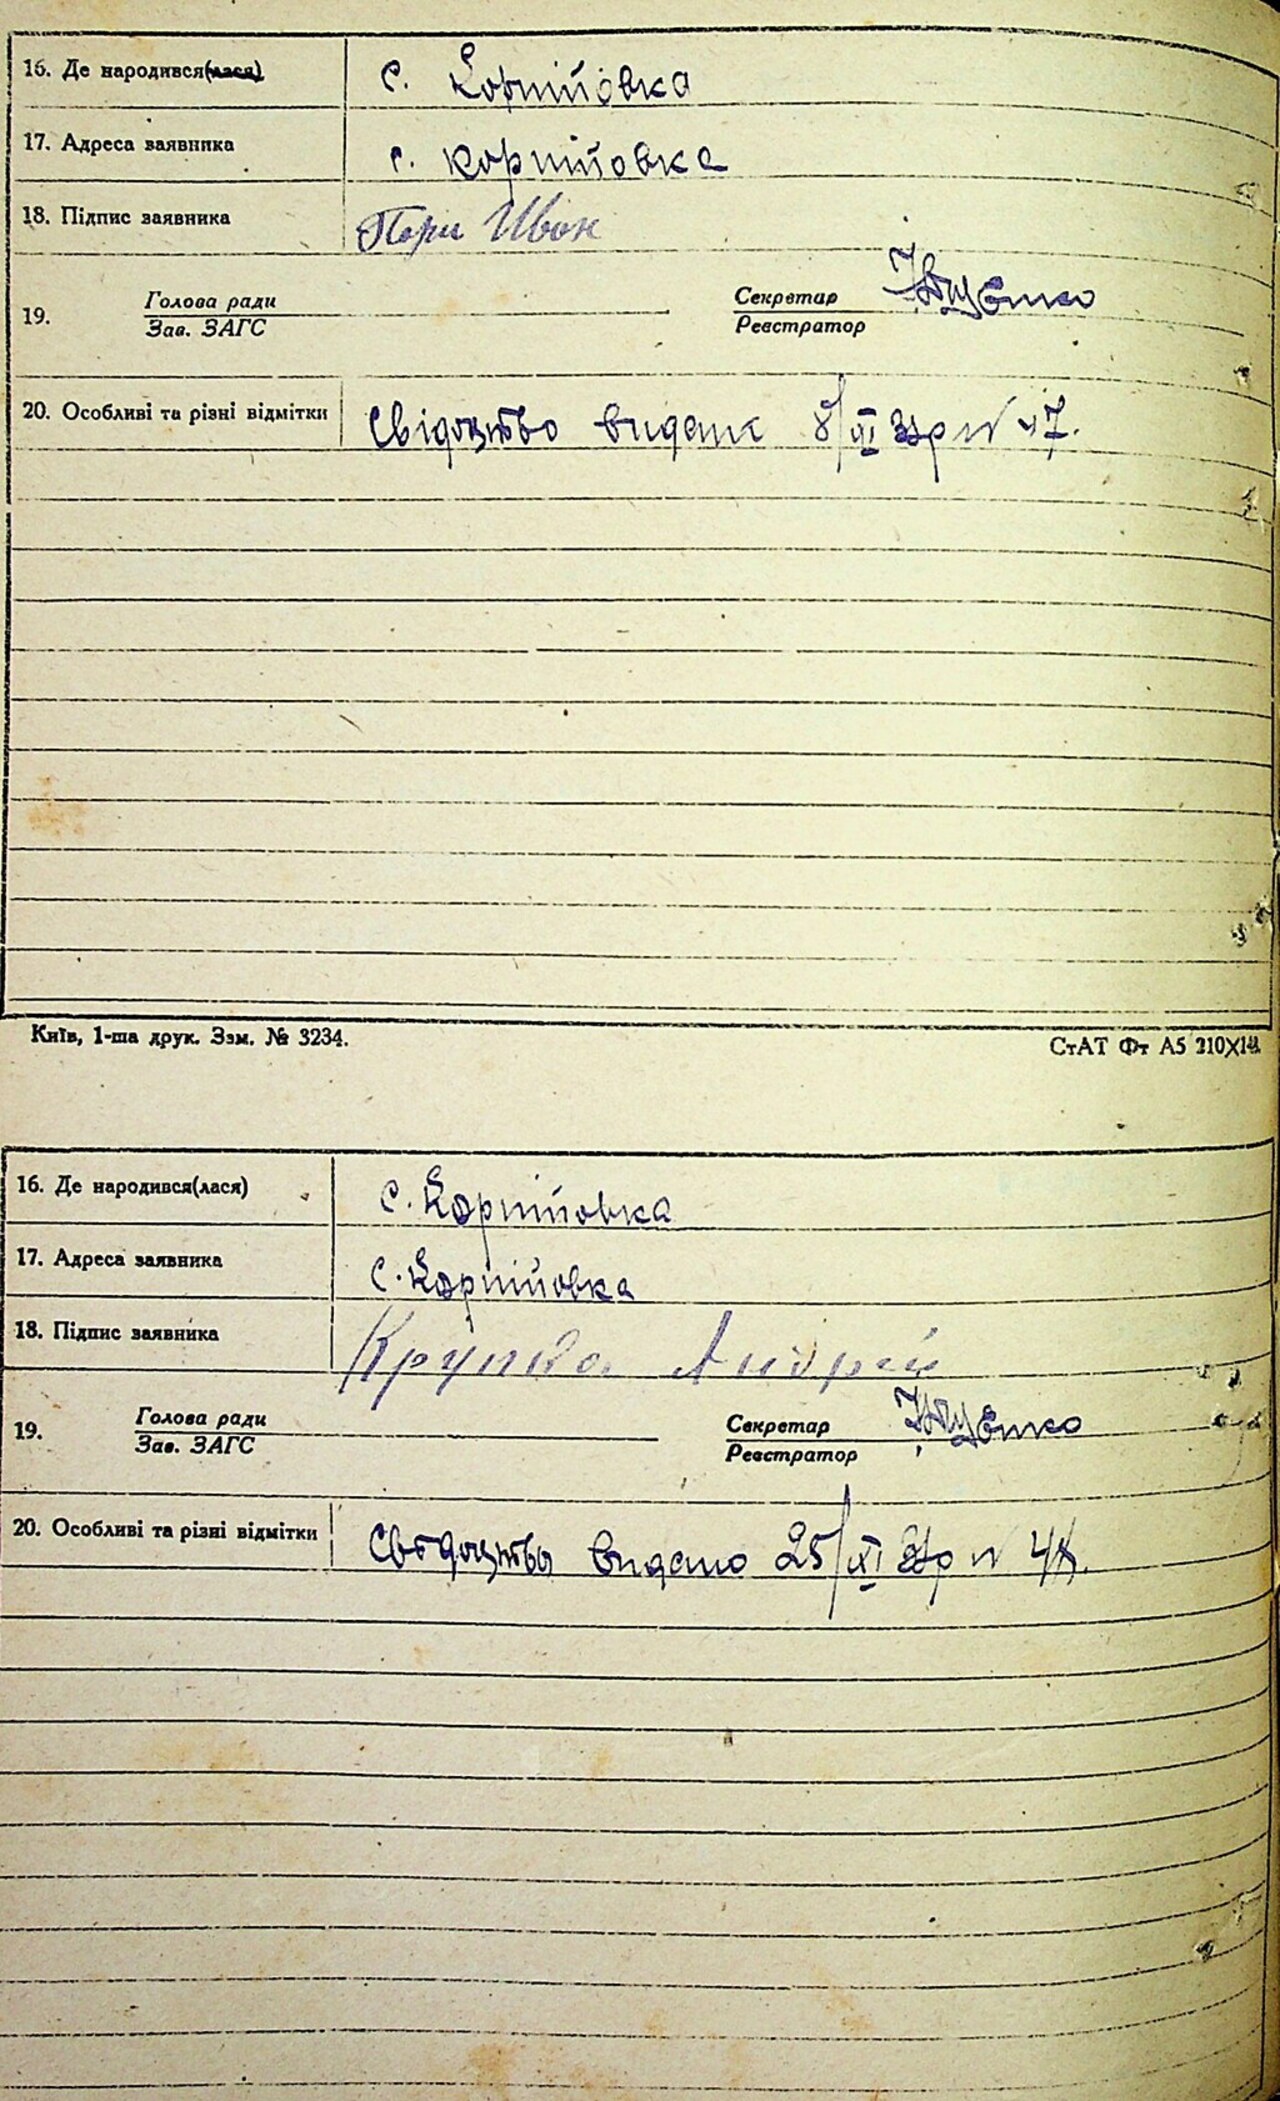 16. Де народився(лася) с. Корнійовка
17. Адреса заявника с. Корнійовка
18. Підпис заявника Пори Иван
19. Голова ради Секретар
Зав. ЗАГС Реєстратор
20. Особливі та різні відмітки Свідоцтво видане 8/XI 3 р N 47.
Київ, 1-ша друк. Зам. № 3234. СтАТ Фт А5 210X148
16. Де народився(лася) с. Корнійовка
17. Адреса заявника с. Корнійовка
18. Підпис заявника Крупка Андрій
19. Голова ради Секретар
Зав. ЗАГС Реєстратор
20. Особливі та різні відмітки Свідоцтво видано 25/XI р N